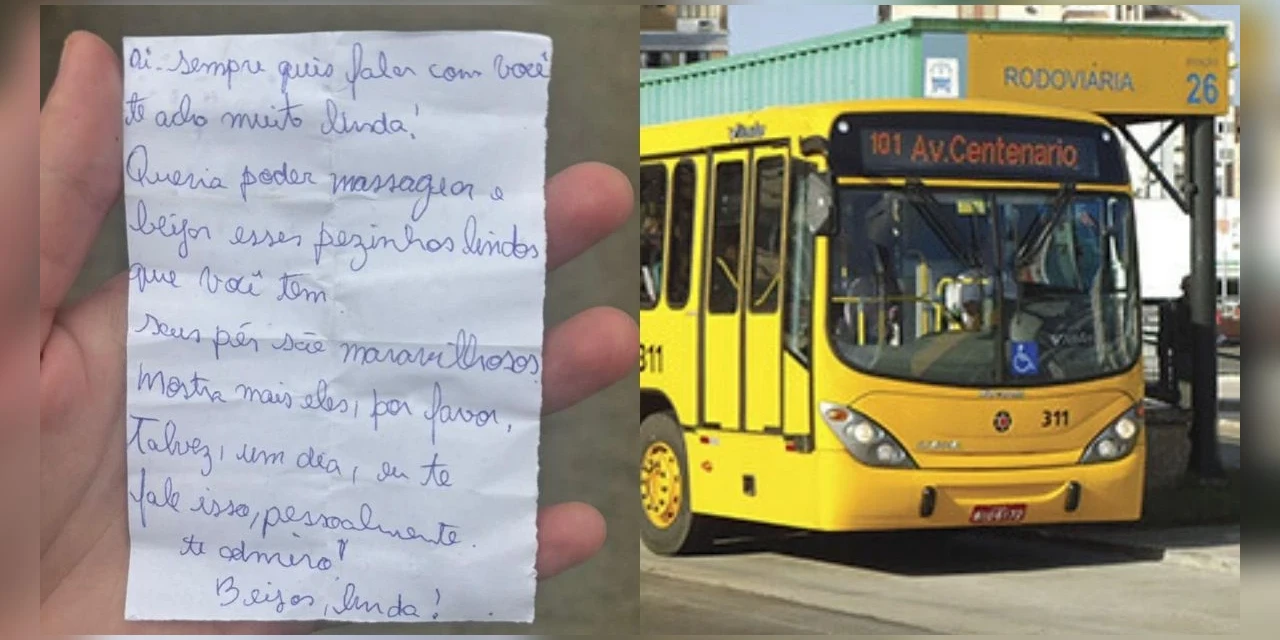 Oi. sempre quis falar com você
te acho muito linda!
Queria poder massagear e
beijar esses pezinhos lindos
que você tem
seus pés são maravilhosos!
Mostra mais eles, por favor,
Talvez, um dia, eu te
fale isso, pessoalmente.
te admiro!
Beijos, linda!
RODOVIÁRIA
26
101 Av.Centenario
311
311